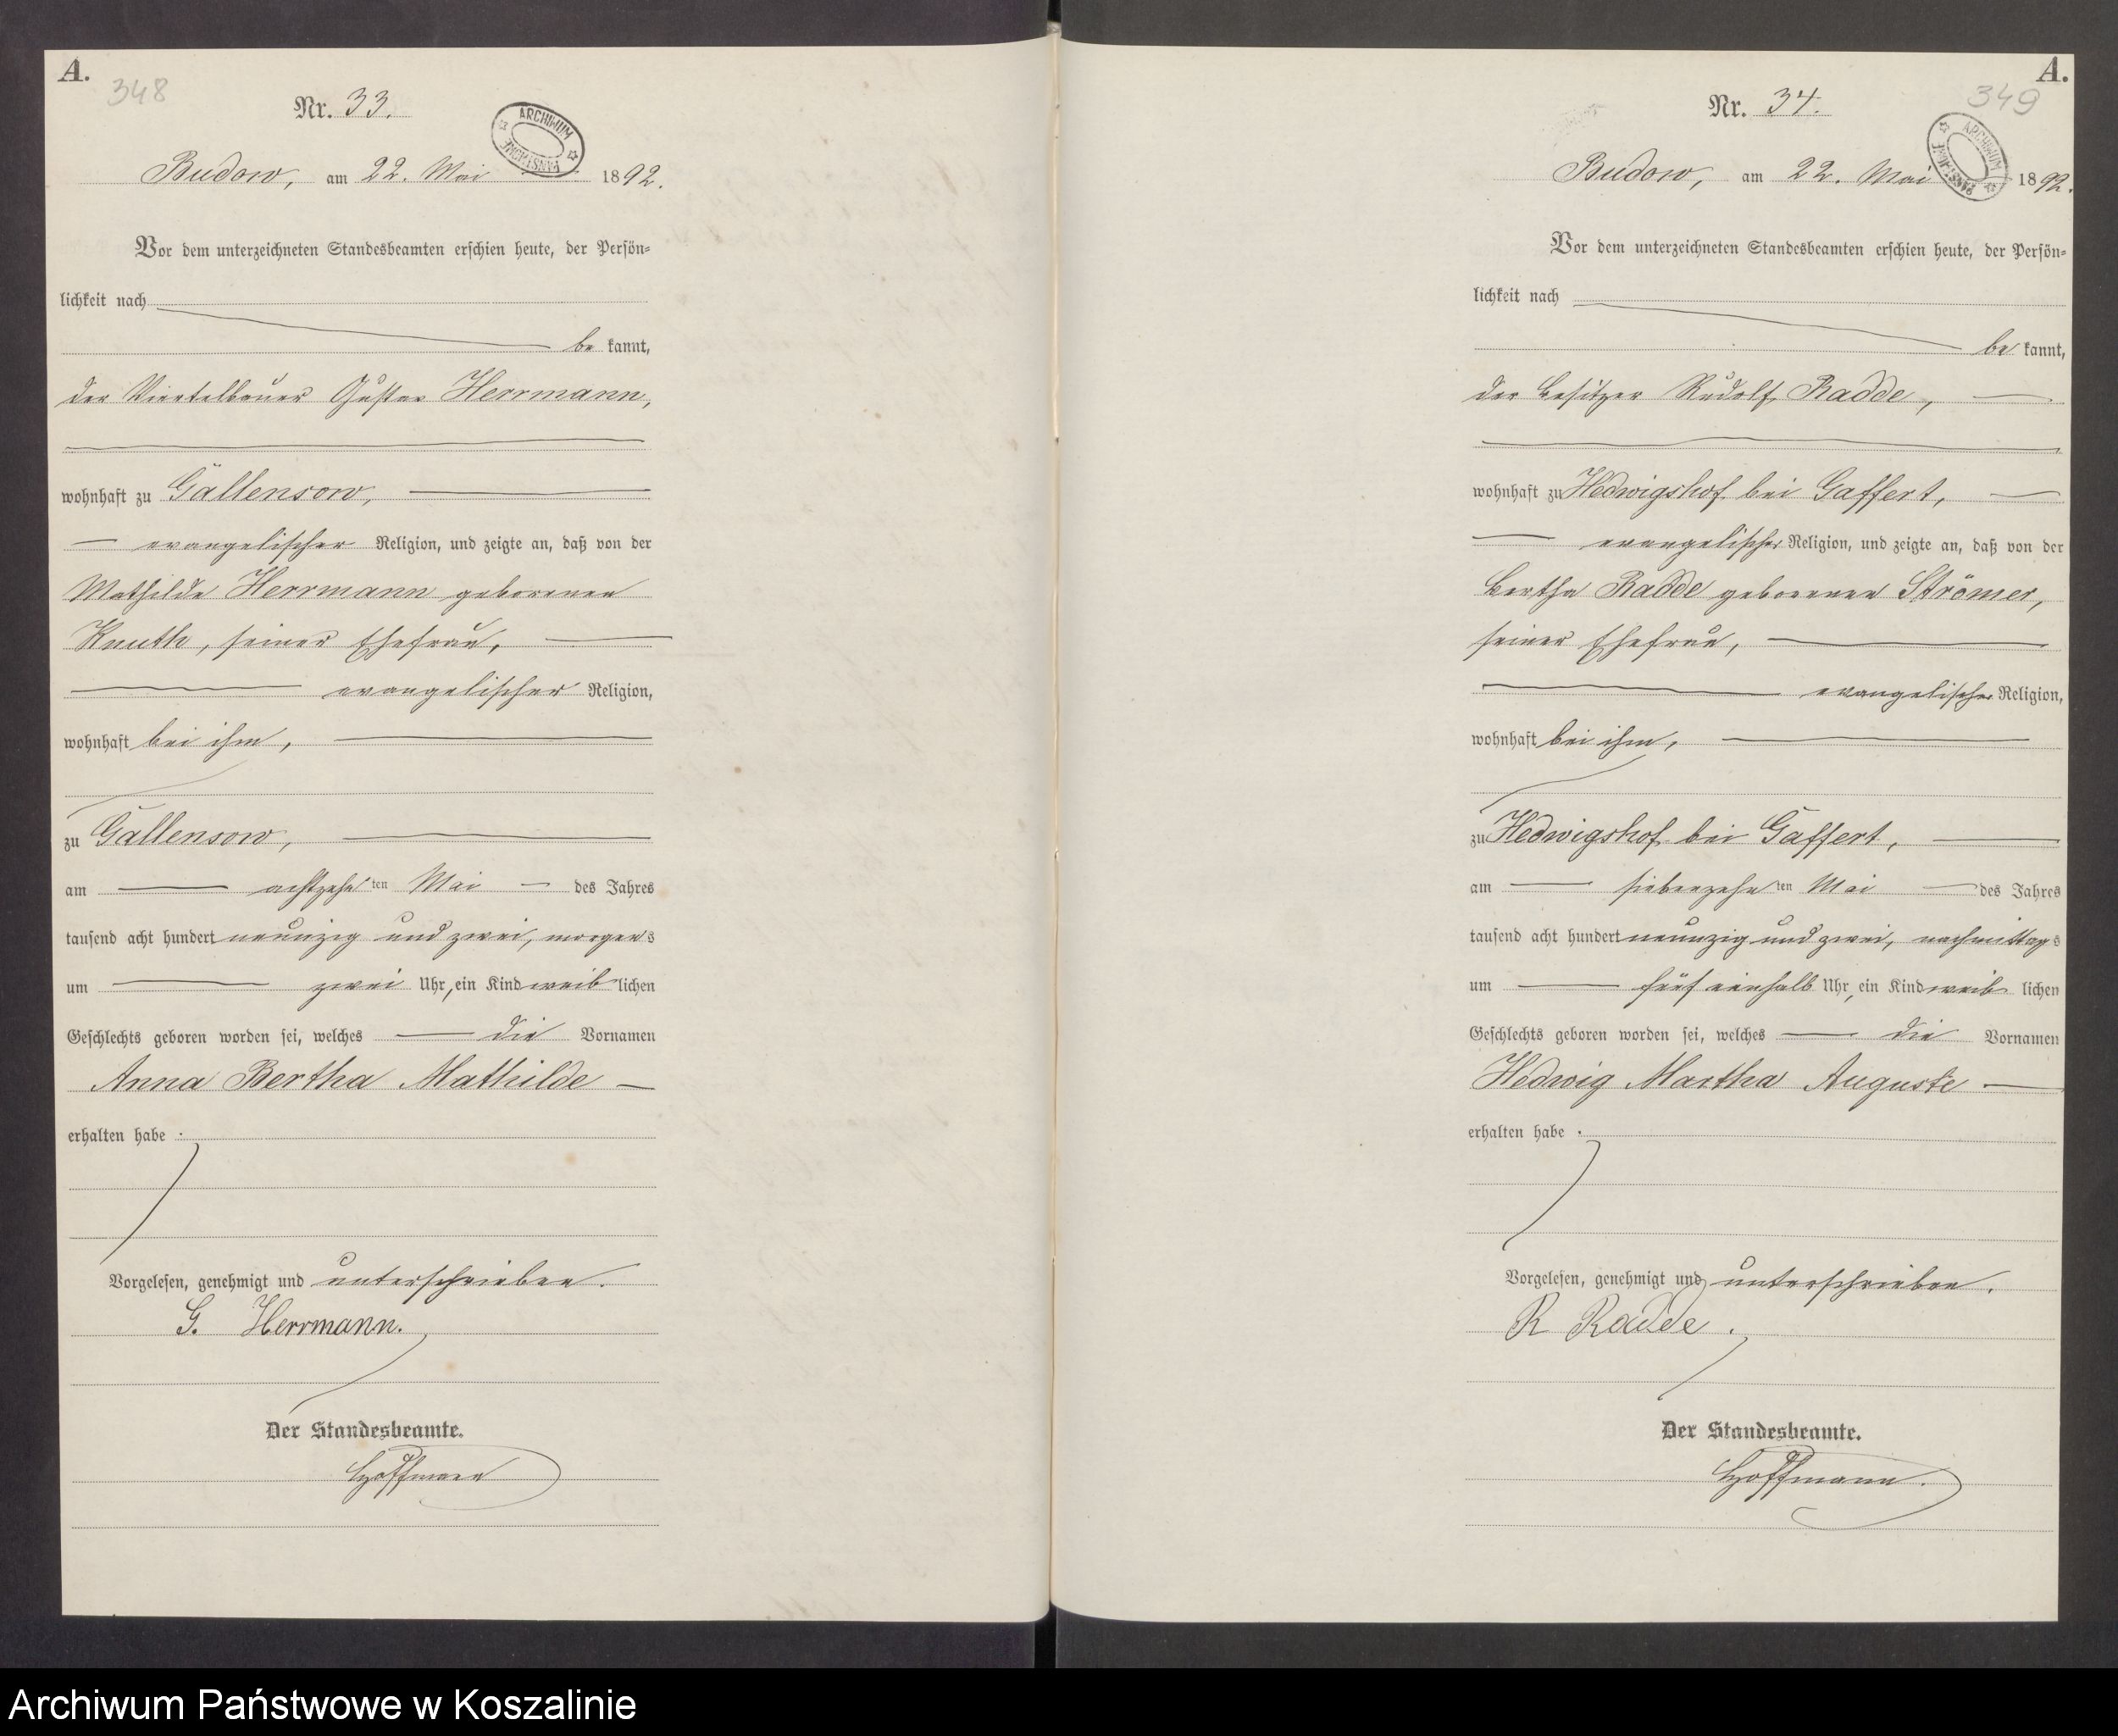 A.
348
Nr. 33.
ARCHIWUM PAŃSTWOWE
Budow, am 22. Mai 1892.
Vor dem unterzeichneten Standesbeamten erschien heute, der Persön-
lichkeit nach
be kannt,
der Viertelbauer Gustav Herrmann,
wohnhaft zu Gallensow,
evangelischer Religion, und zeigte an, daß von der
Mathilde Herrmann geborenen
Knuth, seiner Ehefrau,
evangelischer Religion,
wohnhaft bei ihm,
zu Gallensow,
am achtzehn ten Mai des Jahres
tausend acht hundert neunzig und zwei, morgens
um zwei Uhr, ein Kind weib lichen
Geschlechts geboren worden sei, welches die Vornamen
Anna Bertha Mathilde
erhalten habe.
Vorgelesen, genehmigt und unterschrieben.
G. Herrmann.
Der Standesbeamte.
Hoffmann
A.
349
Nr. 34.
ARCHIWUM PAŃSTWOWE
Budow, am 22. Mai 1892.
Vor dem unterzeichneten Standesbeamten erschien heute, der Persön-
lichkeit nach
be kannt,
der Besitzer Rudolf Radde,
wohnhaft zu Hedwigshof bei Gaffert,
evangelischer Religion, und zeigte an, daß von der
Bertha Radde geborenen Strömer,
seiner Ehefrau,
evangelischer Religion,
wohnhaft bei ihm,
zu Hedwigshof bei Gaffert,
am siebenzehn ten Mai des Jahres
tausend acht hundert neunzig und zwei, nachmittags
um fünf einhalb Uhr, ein Kind weib lichen
Geschlechts geboren worden sei, welches die Vornamen
Hedwig Martha Auguste
erhalten habe.
Vorgelesen, genehmigt und unterschrieben.
R Radde.
Der Standesbeamte.
Hoffmann.
Archiwum Państwowe w Koszalinie